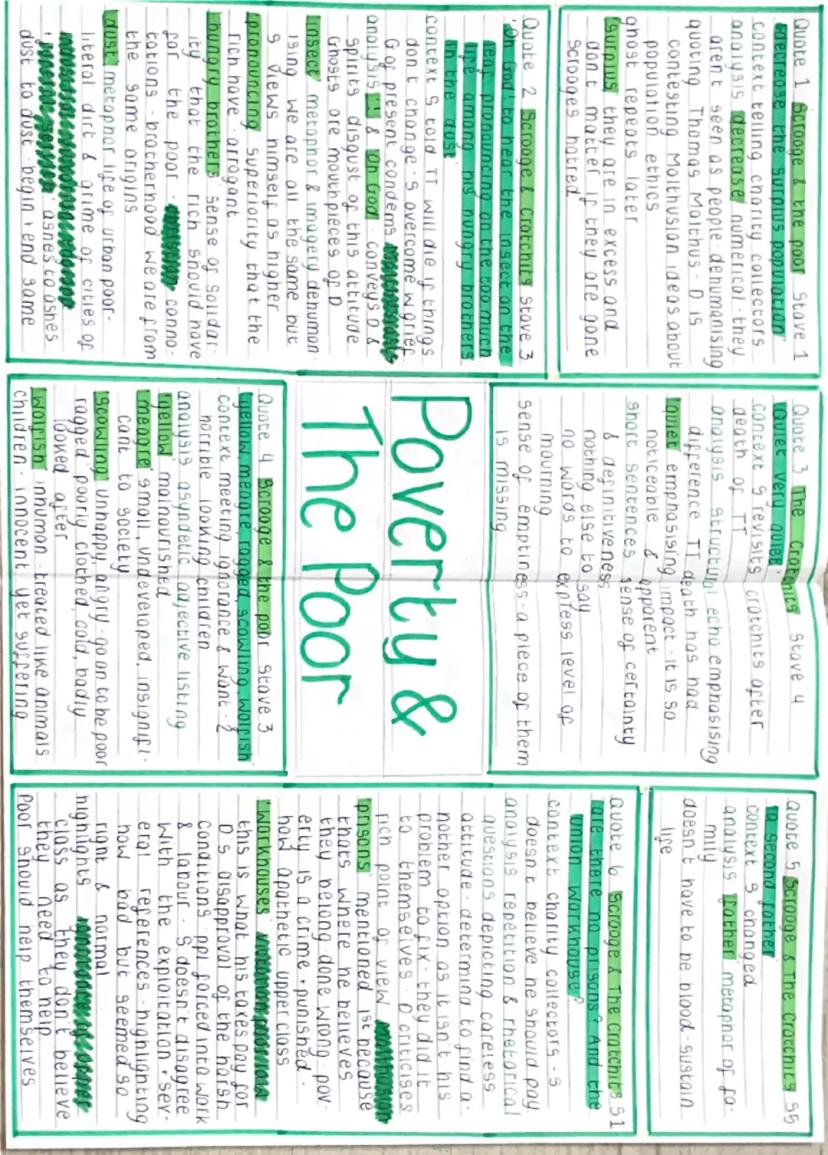 Quote 1 Scrooge & the poor Stave 1
decrease the surplus population'
context telling charity collectors
analysis decrease numerical · they
aren't seen as people · dehumanising
quoting Thomas Malthus · D is
contesting Malthusian ideas about
population ethics
ghost repeats later
surplus they are in excess and
don't matter if they are gone
scrooges hatred
Quote 2 Scrooge & Cratchits Stave 3
'Oh God! to hear the insect on the
leaf pronouncing on the too much
life among his hungry brothers
in the dust'
context S told TT will die if things
don't change · S overcome w grief
G of present condems
analysis '!' & 'Oh God' conveys D &
spirits disgust of this attitude
Ghosts are mouthpieces of D
insect metaphor & imagery dehuman-
ising we are all the same but
S views himself as higher
pronouncing superiority that the
rich have · arrogant
hungry brothers sense of solidar-
ity that the rich should have
for the poor conno-
tations · brotherhood we are from
the same origins
dust metaphor life of urban poor-
literal dirt & grime of cities of
ashes to ashes
dust to dust · begin + end same
Quote 3 The Cratchits Stave 4
'Quiet very quiet'
context S revisits cratchits after
death of TT
analysis structural echo emphasising
difference TT death has had
quiet emphasising impact · it is so
noticeable & apparent
short sentences sense of certainty
& definitiveness
nothing else to say
no words to express level of
mourning
sense of emptiness · a piece of them
is missing
Poverty &
The Poor
Quote 4 Scrooge & the poor Stave 3
'yellow meagre, ragged scowling wolfish'
context meeting ignorance & want · 2
horrible looking children
analysis asyndetic adjective listing
yellow malnourished
meagre small, undeveloped, insignifi-
cant to society
scowling unhappy, angry · go on to be poor
ragged poorly clothed, cold, badly
looked after
wolfish inhuman · treated like animals
children · innocent yet suffering
Quote 5 Scrooge & The Cratchits S5
'a second father'
context S changed
analysis father metaphor of fa-
mily
doesn't have to be blood · sustain
life
Quote 6 Scrooge & The Cratchits S1
'are there no prisons? And the
union workhouse?'
context charity collectors · S
doesn't believe he should pay
analysis repetition & rhetorical
questions depicting careless
attitude · determined to find a-
nother option as it isn't his
problem to fix · they did it
to themselves · D criticises
rich point of view
prisons mentioned 1st because
thats where he believes
they belong · done wrong · pov-
erty is a crime + punished ·
how apathetic upper class
'workhouses'
this is what his taxes pay for
D's disapproval of the harsh
conditions · ppl forced into work
& labour · S doesn't disagree
with the exploitation · sev-
eral references · highlighting
how bad but seemed so
right & normal
highlights
class as they don't believe
they need to help
Poor should help themselves